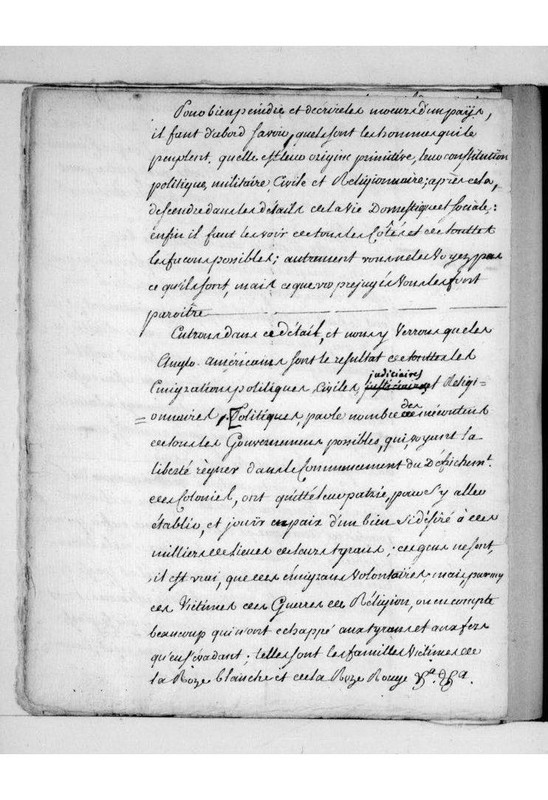 Pour bien peindre et décrire les moeurs d'un païs,
il faut d'abord savoir, quels sont les hommes qui le
peuplent, quelle est leur origine primitive, leur constitution
politique, militaire, Civile et Religionnaire; après cela,
descendre dans les détails de la vie Domestique et sociale:
enfin il faut les voir de tous les Côtés et de touttes
les façons possibles; autrement vous ne les voyez pas
ce qu'ils sont, mais ce que vos préjugés vous les font
paroître.
Entrons dans ce détail, et nous y verrons que les
Anglo-américains sont le resultat de touttes les
judiciaires
Emigrations politiques, Civiles, et Religi-
onnaires. Politiques, par le nombre des mécontents
de tous les Gouvernemens possibles, qui, voyant la
liberté règner dans le Commencement du Défrichemt.
des Colonies, ont quitté leur patrie, pour s'y aller
établir, et jouir en paix d'un bien si désiré à des
milliers de lieues de leurs tyrans; ces gens ne sont,
il est vrai, que des émigrans volontaires; mais parmy
ces Victimes des Guerres de Réligion, on en compte
beaucoup qui n'ont echappé aux tyrans et aux fers
qu'en s'évadant; telles sont les familles victimes de
la Roze blanche et de la Roze Rouge